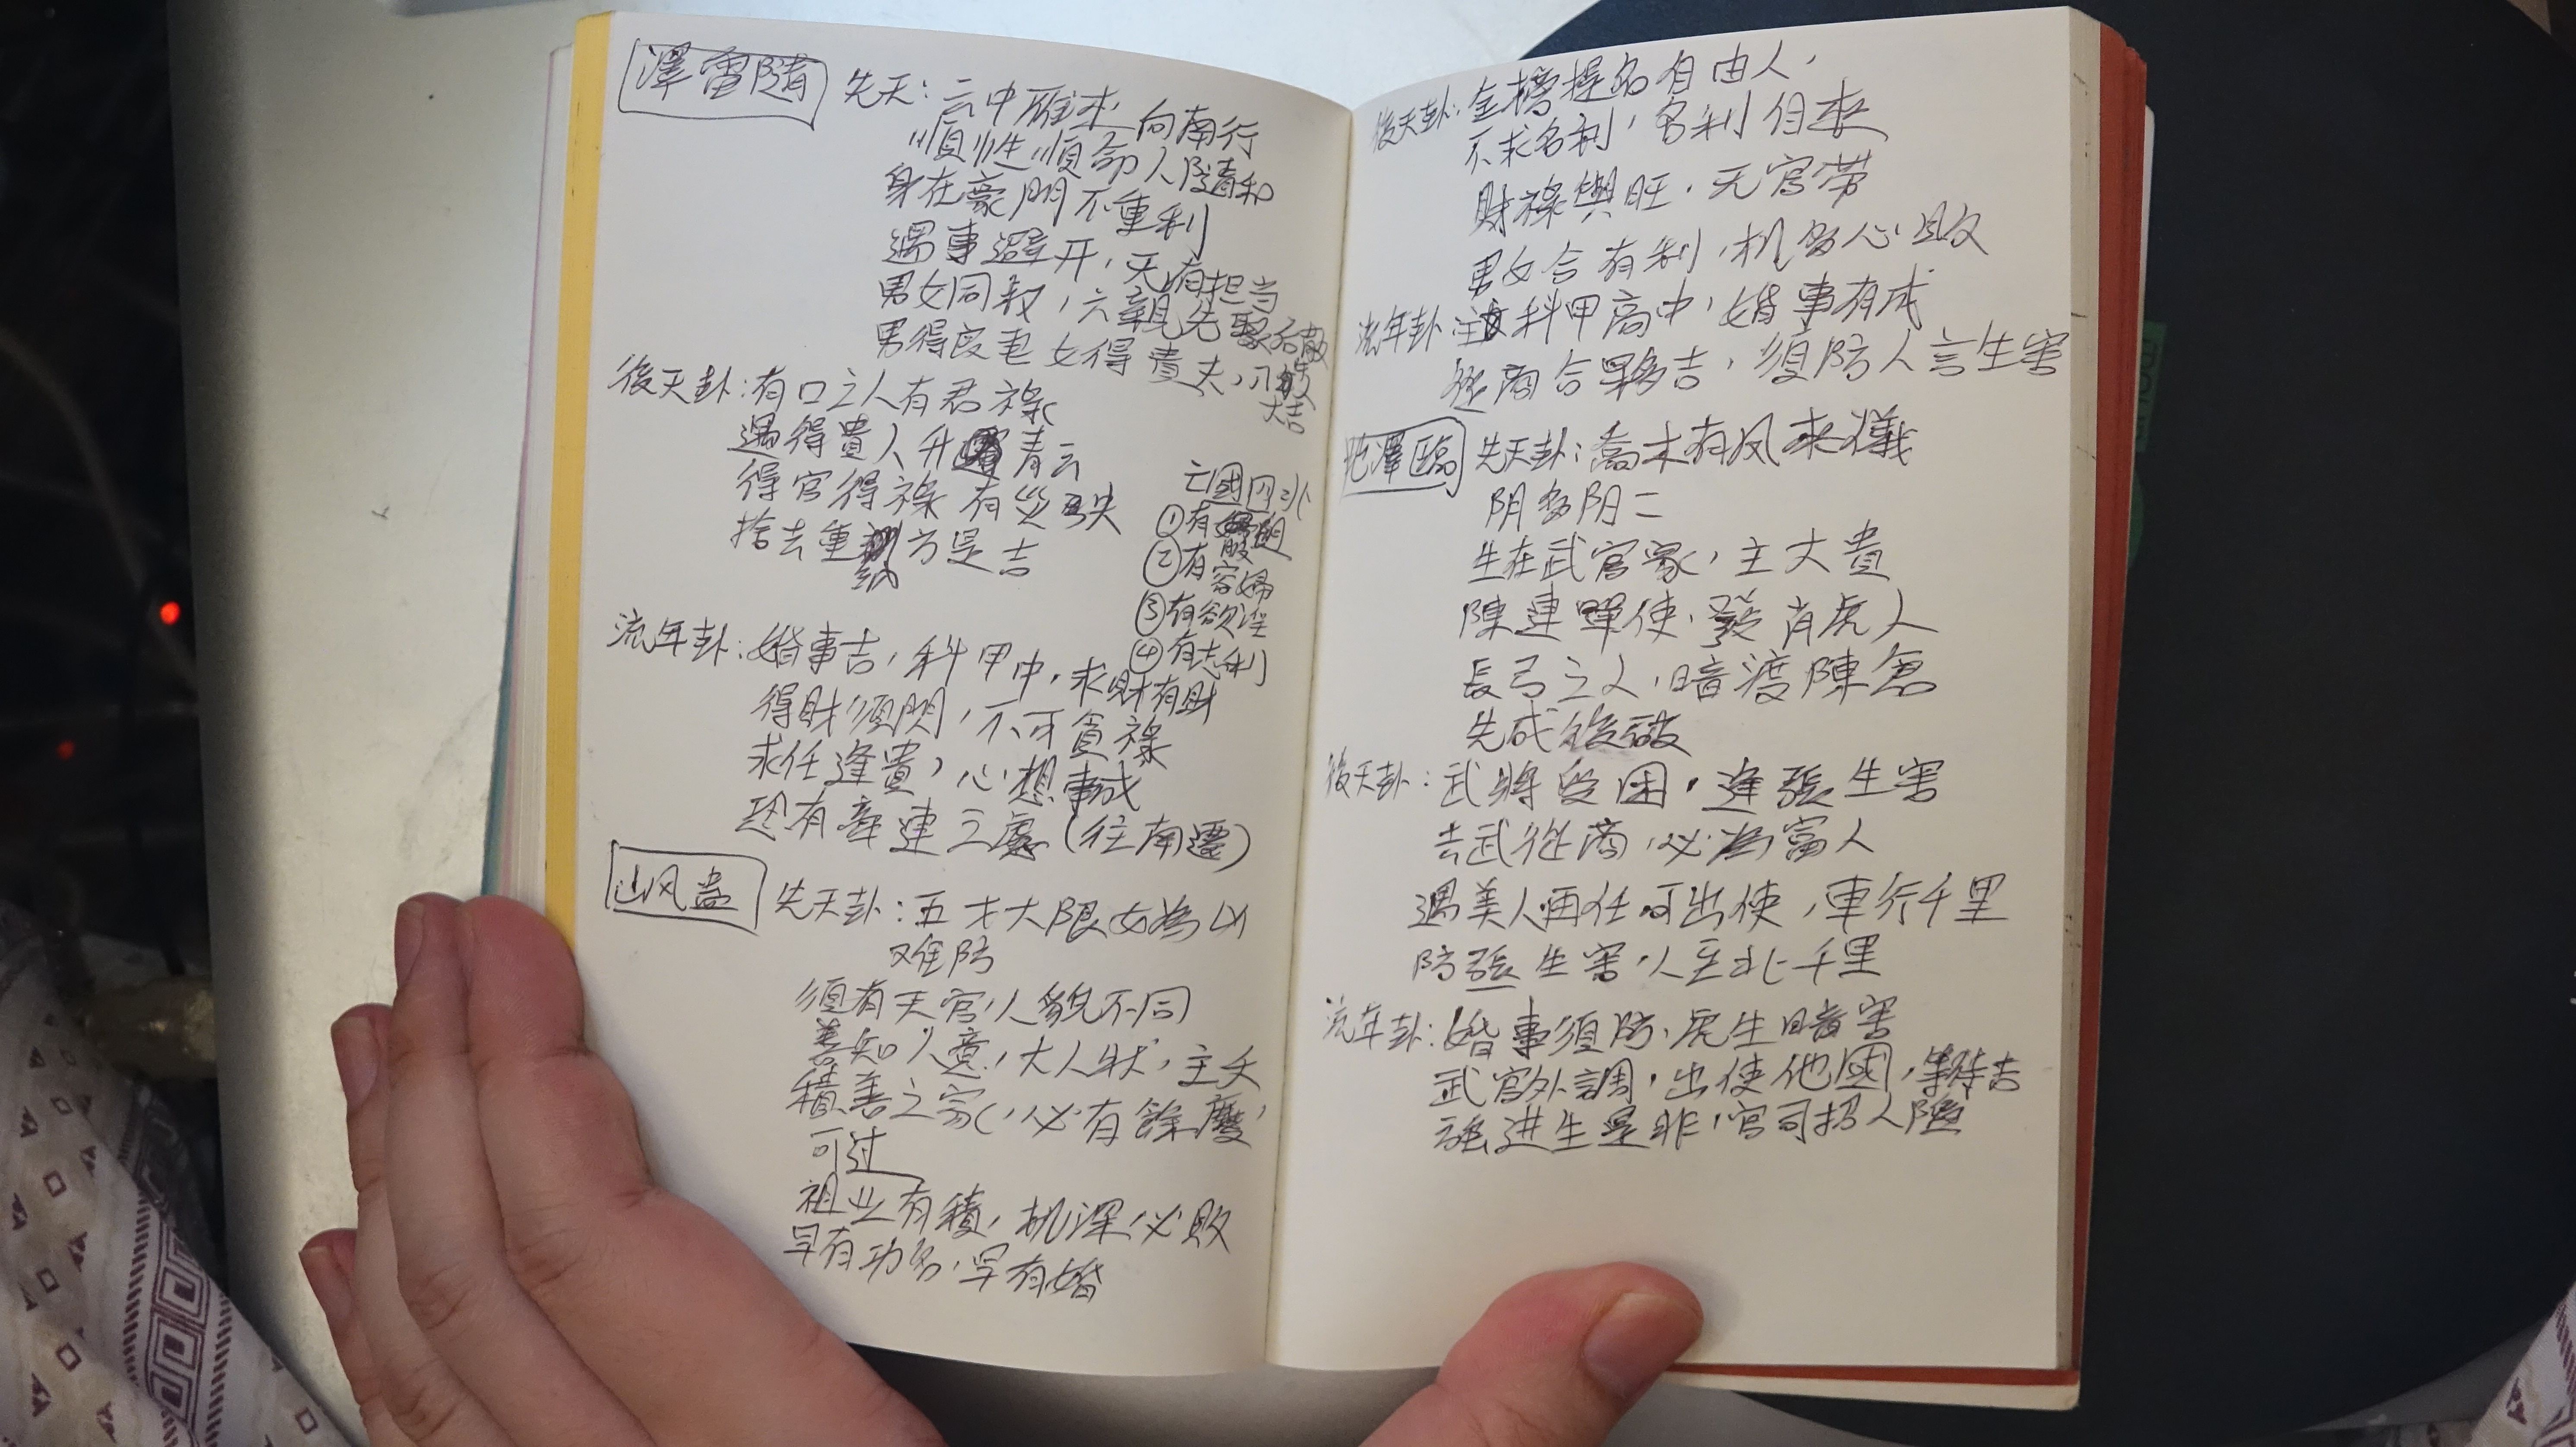 澤雷隨
先天：云中雁來向南行
順性順命人隨和
身在豪門不重利
遇事避开，天有担当
男女同叙，六親先聚后散
男得良 女得貴夫，
大吉
後天卦：有口之人有君祿
遇得貴人升青云
得官得祿 有災
捨去重 方是吉
納
亡國四水
①有
②有容婦
③有欲淫
④有志利
流年卦：婚事吉，科甲中，求財有財
得財須閃，不可貪祿
求任逢貴，心想事成
恐有牽連三處（往南遷）
山风蠱
先天卦：五才大限女為山
难防
須有天官人貌不同
善知人意，大人状，主文
積善之家，必有餘慶，
可过
祖业有積，机深必敗
早有功名，早有婚
後天卦：金榜提名自由人，
不求名利，名利自來
財祿興旺，无官帶
男女合有利，机多心敗
流年卦：科甲高中，婚事有成
從商合夥吉，須防人言生害
地澤臨
先天卦：喬木有凤來儀
阴多阳二
生在武官家，主大貴
陳連單使，發肖虎人
長弓之人，暗渡陳倉
先成後破
後天卦：武將受困，逢張生害
去武從商，必為富人
遇美人再任可出使，車行千里
防張生害，人至北千里
流年卦：婚事須防，虎生暗害
武官外調，出使他國，等待吉
強进生是非，官司招人險